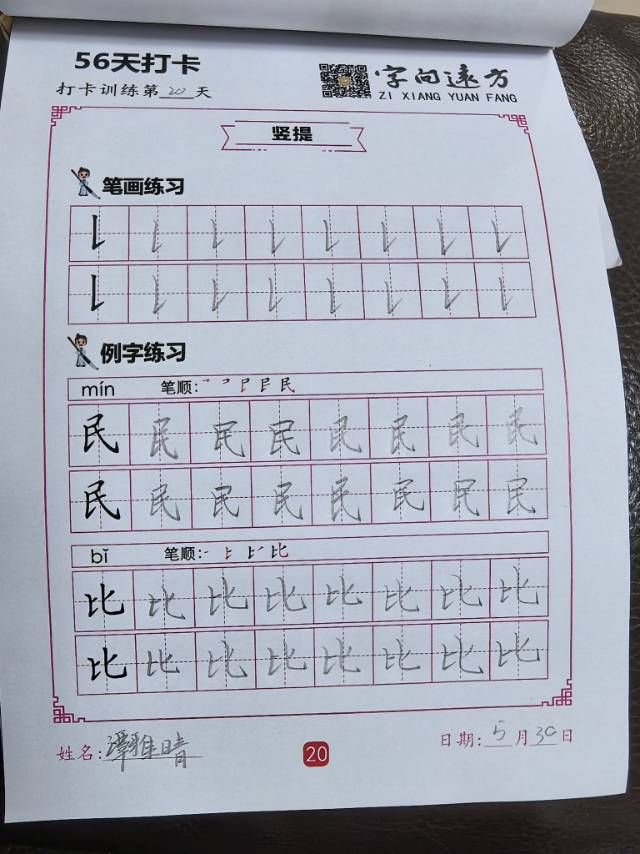 56天打卡
打卡训练第20天
字向远方
ZI XIANG YUAN FANG
竖提
笔画练习
例字练习
mín 笔顺:
民 民 民 民 民 民 民 民
民 民 民 民 民 民 民 民
bǐ 笔顺:
比 比 比 比 比 比 比 比
比 比 比 比 比 比 比 比
姓名:潭雅晴
20
日期:5月30日